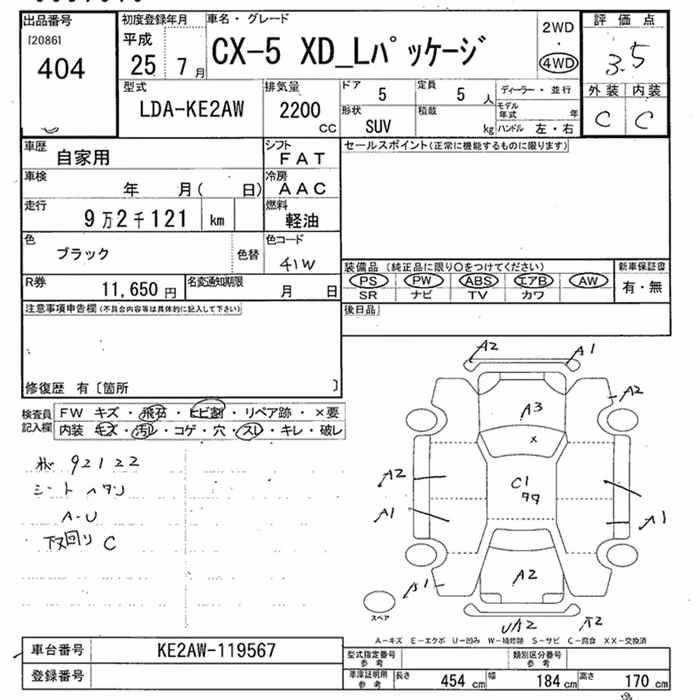 出品番号 初度登録年月 車名・グレード 2WD 評価点
[2086]
404 平成 25 年 7 月 CX-5 XD_Lパッケージ 4WD 3.5
型式 排気量 ドア 5 定員 5 人 ディーラー・並行 外装 内装
LDA-KE2AW 2200 CC 形状 SUV 積載 kg モデル年式 年 C C
ハンドル 左・右
車歴 自家用 シフト FAT セールスポイント(正常に機能するものに限ります)
車検 年 月( 日) 冷房 AAC
走行 9万2千121 km 燃料 軽油
色 ブラック 色替 色コード 41W
装備品(純正品に限り○をつけてください) 新車保証書
PS PW ABS エアB AW 有・無
SR ナビ TV カワ
R券 11,650 円 名変通知期限 月 日
後日品
注意事項申告欄(不具合内容等は具体的に記入して下さい)
修復歴 有〔箇所 〕
検査員記入欄 FW キズ・飛石・ヒビ割・リペア跡・×要
内装 キズ・汚レ・コゲ・穴・スレ・キレ・破レ
92122
シートヘタリ
A-U
下回り C
A2 A1
A2
A3
x
A2 C1
A1 A1
A1 A2
スペア
UA2 A2
A-キズ E-エクボ U-凹み W-補修跡 S-サビ C-腐食 XX-交換済
車台番号 KE2AW-119567 型式指定番号 参考 類別区分番号 参考
登録番号 車庫証明用 参考 長さ 454 cm 幅 184 cm 高さ 170 cm